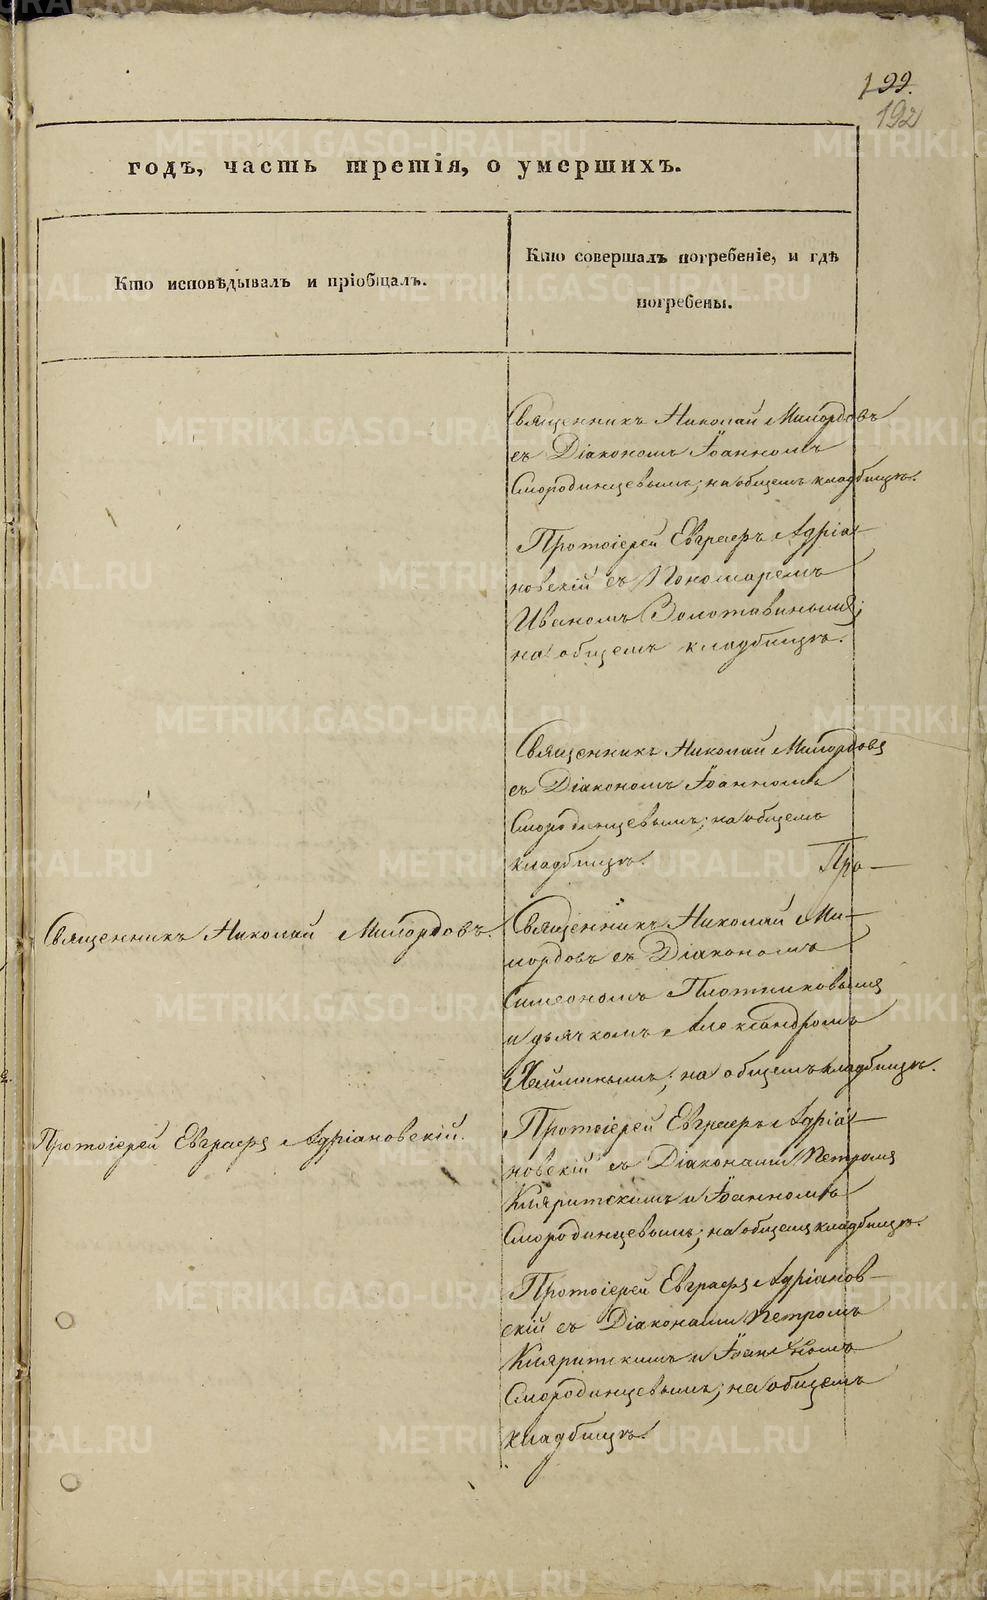 199.
192
годъ, часть третія, о умершихъ.
Кто исповѣдывалъ и пріобщалъ.
Кто совершалъ погребеніе, и гдѣ
погребены.
Священникъ Николай Милордовъ
съ Діакономъ Іоанномъ
Смородинцевымъ; на общемъ кладбищѣ.
Протоіерей Евграфъ Адріа-
новскій съ Пономаремъ
Иваномъ Золотавинымъ;
на общемъ кладбищѣ.
Священникъ Николай Милордовъ
съ Діакономъ Іоанномъ
Смородинцевымъ; на общемъ
кладбищѣ.
Про-
Священникъ Николай Милордовъ.
Священникъ Николай Ми-
лордовъ съ Діакономъ
Симеономъ Плотниковымъ
и дьячкомъ Александромъ
на общемъ кладбищѣ.
Протоіерей Евграфъ Адріановскій.
Протоіерей Евграфъ Адріа-
новскій съ Діаконами Петромъ
и Іоанномъ
Смородинцевымъ; на общемъ кладбищѣ.
Протоіерей Евграфъ Адріанов-
скій съ Діаконами Петромъ
и Іоанномъ
Смородинцевымъ; на общемъ
кладбищѣ.
METRIKI.GASO-URAL.RU